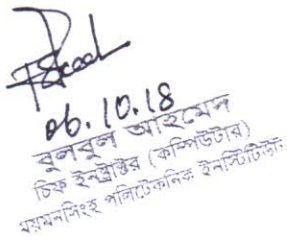 06.10.18
বুলবুল আহমেদ
চিফ ইনস্ট্রাক্টর (কম্পিউটার)
ময়মনসিংহ পলিটেকনিক ইনস্টিটিউট